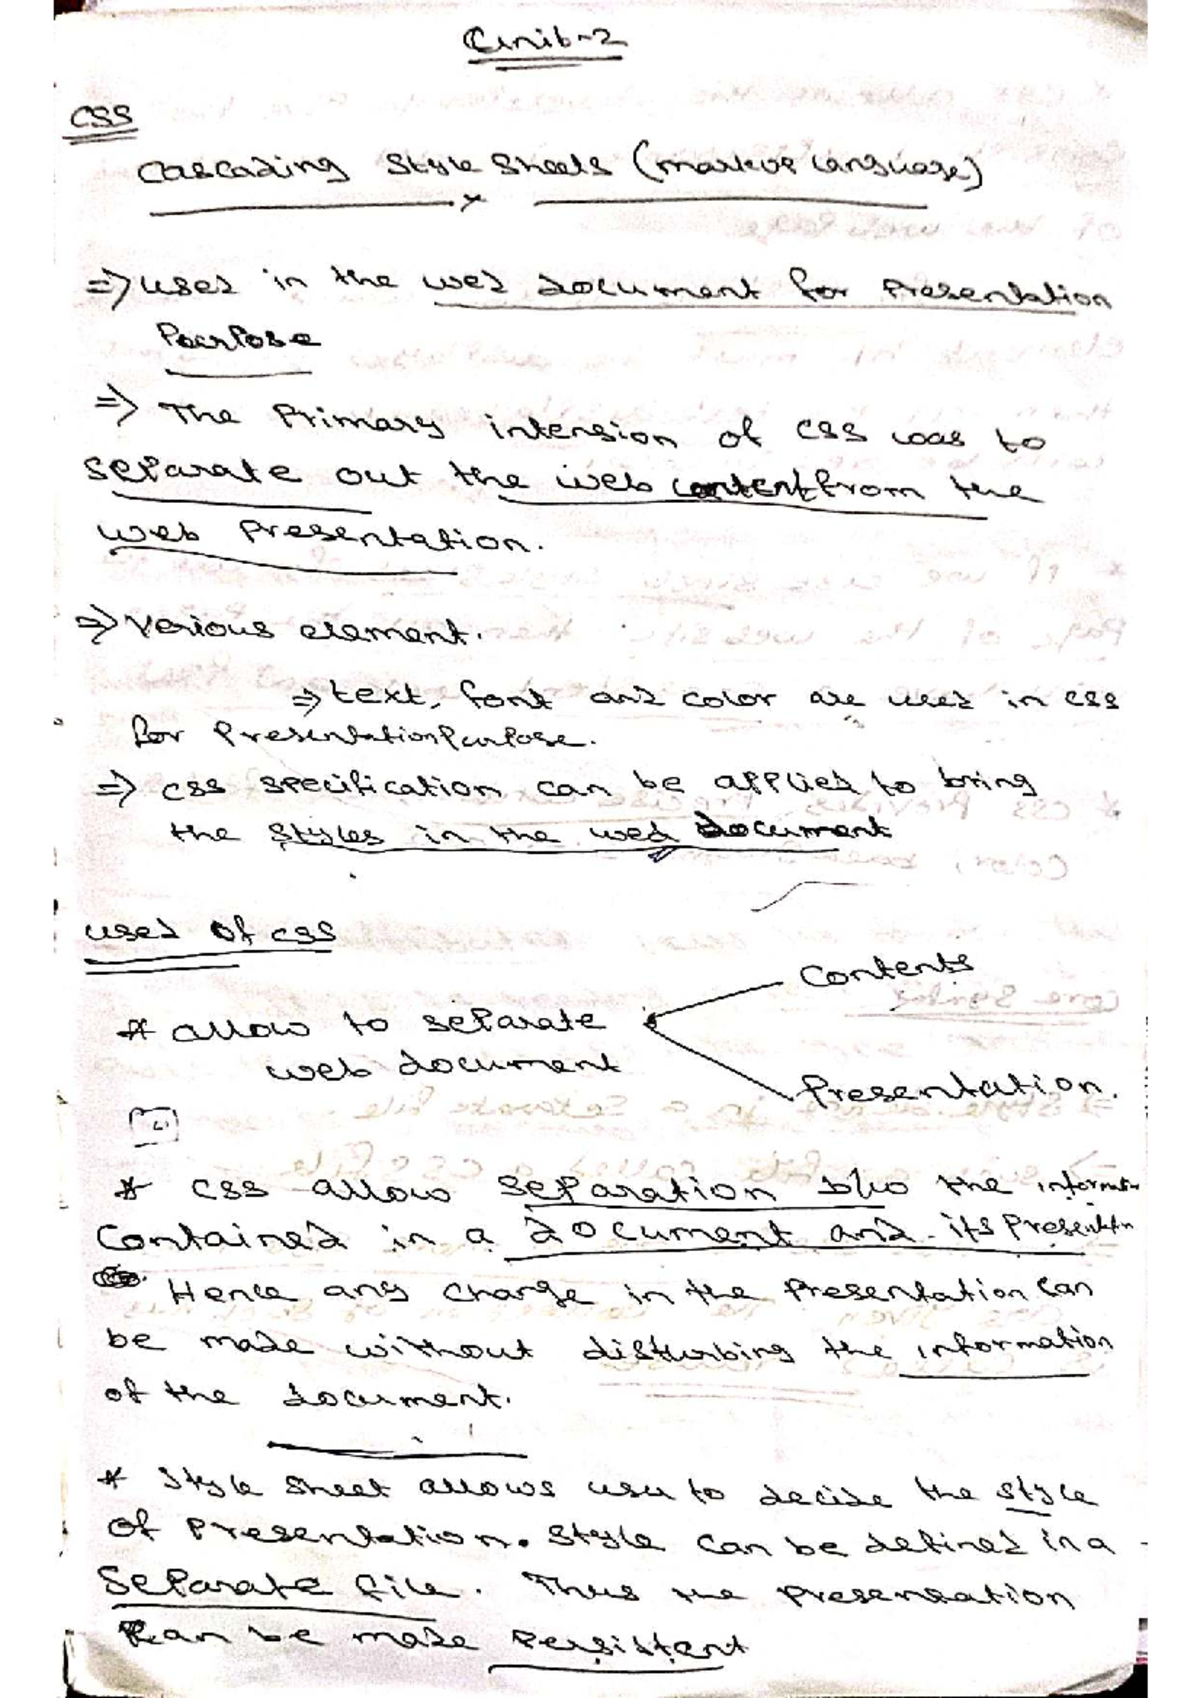 Unit-2
CSS
Cascading Style Sheets (markup language)
=> used in the web document for Presentation
Purpose
=> The Primary intension of CSS was to
separate out the web content from the
web Presentation.
=> Verious element.
=> text, font and color are used in CSS
for Presentation Purpose.
=> CSS specification can be applied to bring
the styles in the web document
used of CSS
* allow to separate
web document
Contents
Presentation.
* CSS allow separation b/w the informtn
Contained in a document and its Presenttn
Hence any change in the Presentation Can
be made without distturbing the information
of the document.
* Style sheet allows user to decide the style
of Presentation. Style can be defined in a
Separate file. Thus the presentation
can be made Persistent